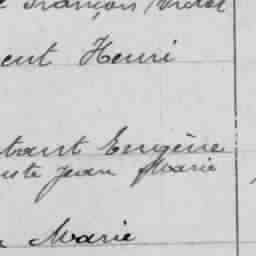 François Victor
ent Henri
tant Eugène
uste Jean Marie
Marie